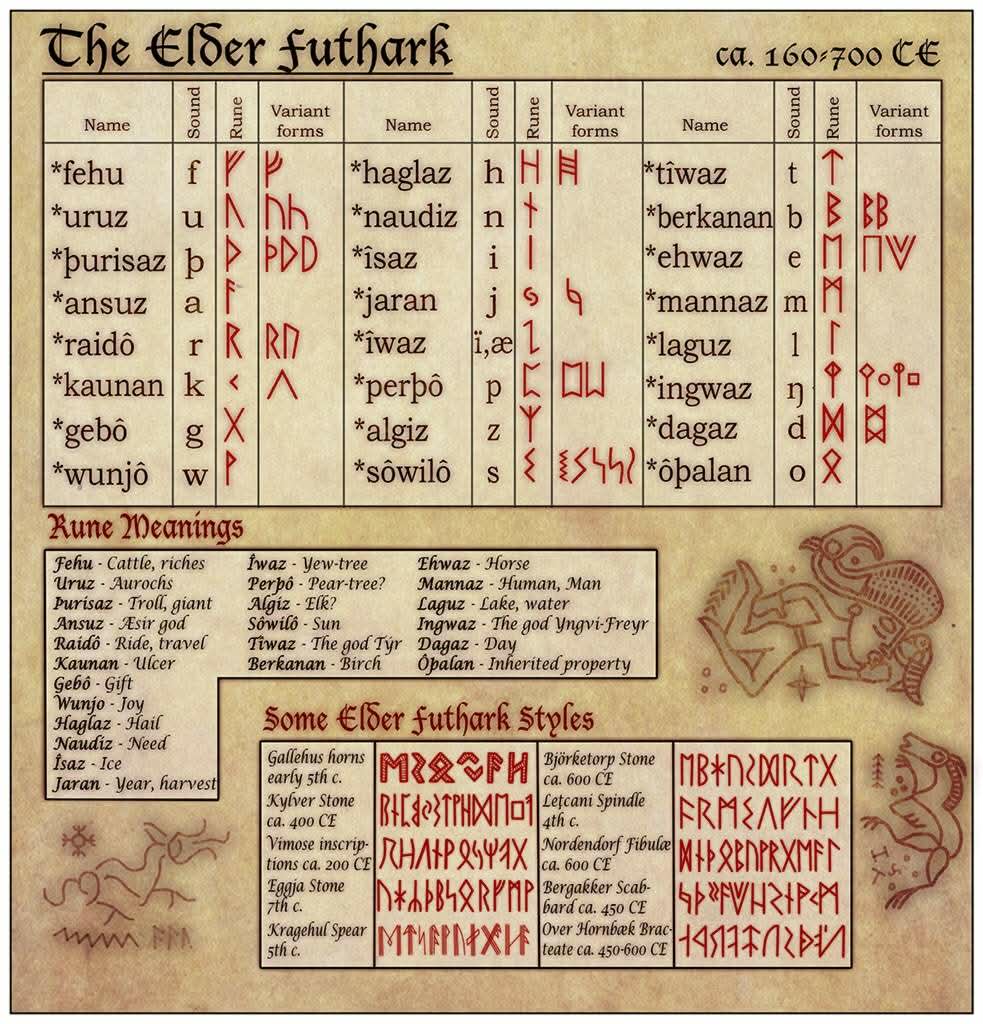 The Elder Futhark
ca. 160-700 CE
Name Sound Rune Variant forms Name Sound Rune Variant forms Name Sound Rune Variant forms
*fehu f ᚠ *haglaz h ᚺ ᚻ *tîwaz t ᛏ
*uruz u ᚢ *naudiz n ᚾ *berkanan b ᛒ
*þurisaz þ ᚦ *îsaz i ᛁ *ehwaz e ᛖ
*ansuz a ᚨ *jaran j ᛃ *mannaz m ᛗ
*raidô r ᚱ *îwaz ï,æ ᛇ *laguz l ᛚ
*kaunan k ᚲ *perþô p ᛈ *ingwaz ŋ
*gebô g ᚷ *algiz z ᛉ *dagaz d ᛞ
*wunjô w ᚹ *sôwilô s ᛊ *ôþalan o ᛟ
Rune Meanings
Fehu - Cattle, riches
Uruz - Aurochs
Þurisaz - Troll, giant
Ansuz - Æsir god
Raidô - Ride, travel
Kaunan - Ulcer
Gebô - Gift
Wunjo - Joy
Haglaz - Hail
Naudiz - Need
Îsaz - Ice
Jaran - Year, harvest
Îwaz - Yew-tree
Perþô - Pear-tree?
Algiz - Elk?
Sôwilô - Sun
Tîwaz - The god Týr
Berkanan - Birch
Ehwaz - Horse
Mannaz - Human, Man
Laguz - Lake, water
Ingwaz - The god Yngvi-Freyr
Dagaz - Day
Ôþalan - Inherited property
Some Elder Futhark Styles
Gallehus horns
early 5th c.
Kylver Stone
ca. 400 CE
Vimose inscrip-
tions ca. 200 CE
Eggja Stone
7th c.
Kragehul Spear
5th c.
Björketorp Stone
ca. 600 CE
Leţcani Spindle
4th c.
Nordendorf Fibulæ
ca. 600 CE
Bergakker Scab-
bard ca. 450 CE
Over Hornbæk Brac-
teate ca. 450-600 CE